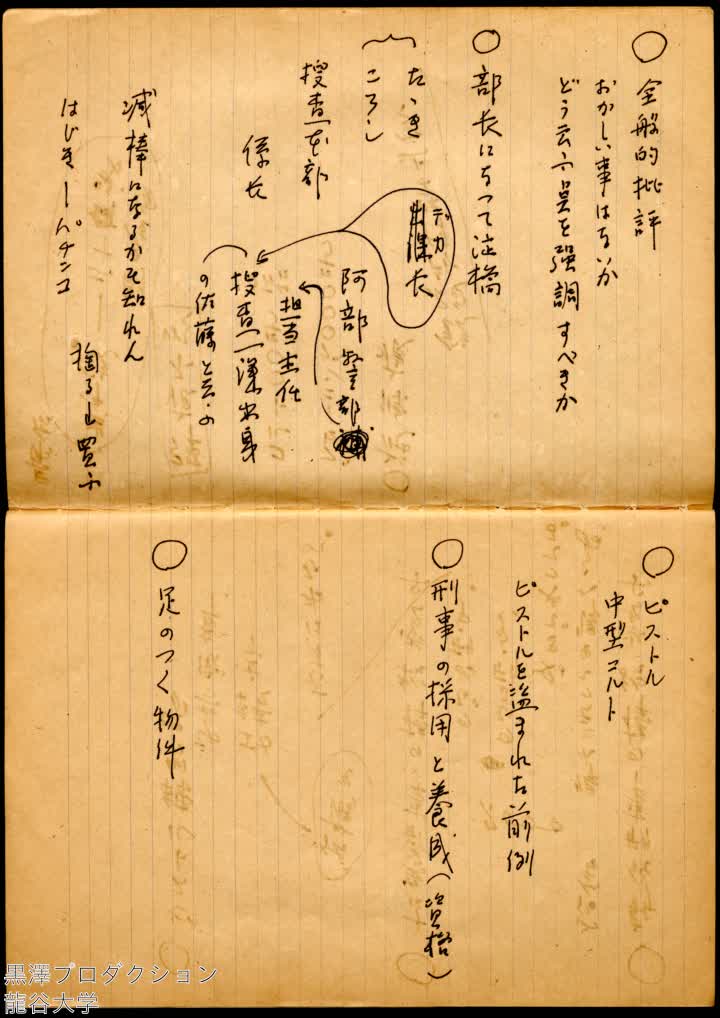 ○ 全般的批評
おかしい事はないか
どう云ふ点を強調すべきか
○ 部長になつて淀橋
たゝき
ころし
捜査本部
係長
デカ
長
阿部警部
担当主任
捜査一課出身
の佐藤と云ふ
減棒になるかも知れん
はじき―パチンコ
○ ピストル
中型コルト
ピストルを盗まれた前例
○ 刑事の採用と養成（資格）
○ 足のつく物件
黒澤プロダクション
龍谷大学